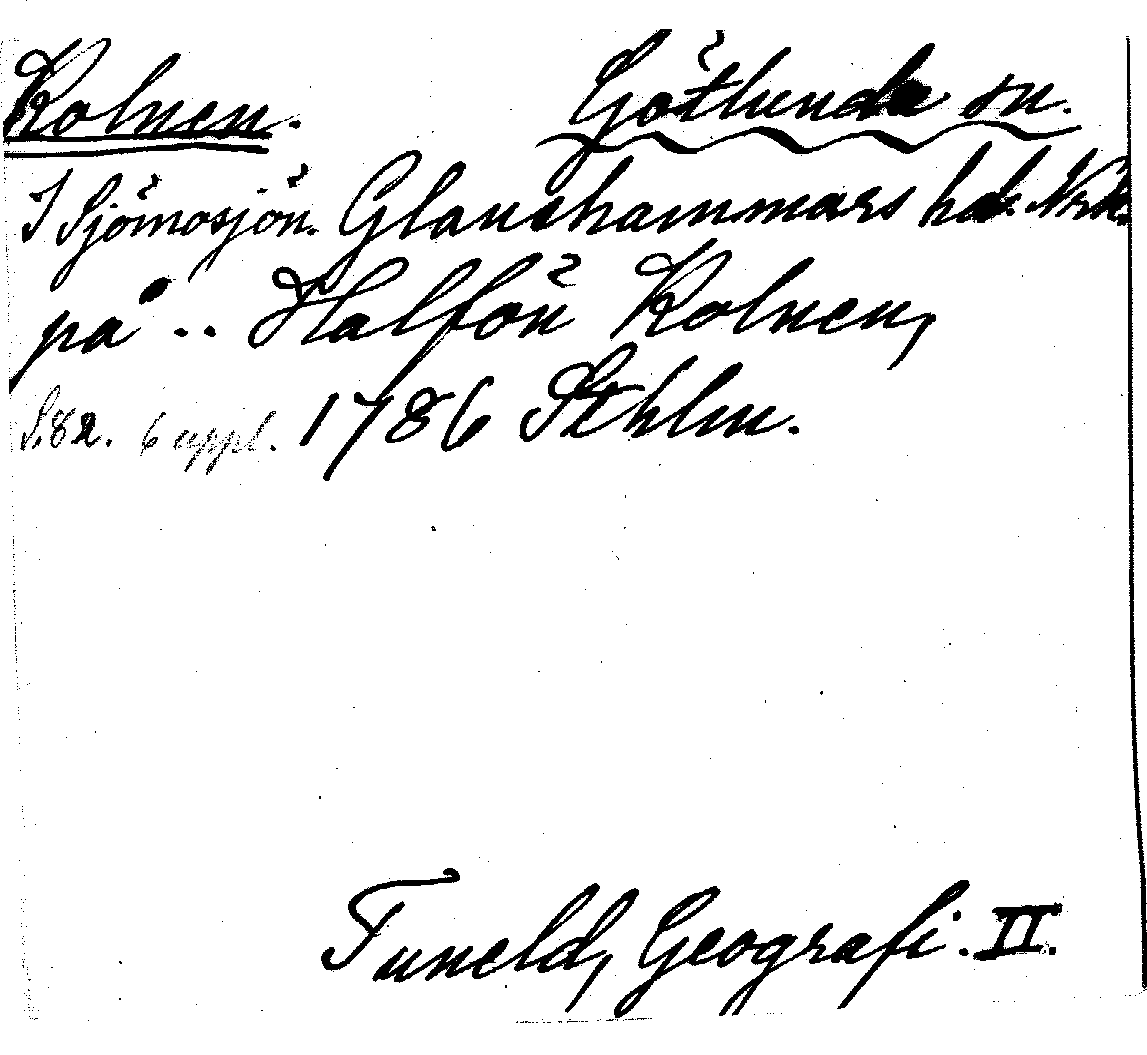 Kolnen. Götlunda sn.
I Sjömosjön. Glanshammars hd. Nrk.
på .. Halfön Kolnen,
S.82. 6 uppl. 1786 Sthlm.
Tuneld, Geografi. II.